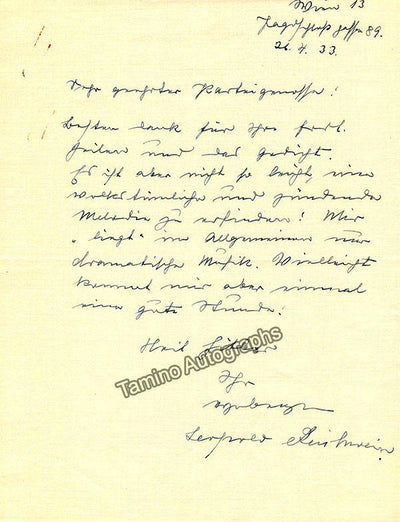 Wien 13
Jagdschloßgasse 89.
26. 4. 33.
Sehr geehrter Parteigenosse!
Besten Dank für Ihre frdl.
Zeilen und das Gedicht.
Es ist aber nicht so leicht, eine
volkstümliche und zündende
Melodie zu erfinden! Mir
„liegt" im Allgemeinen nur
dramatische Musik. Vielleicht
kommt mir aber einmal
eine gute Stunde!
Heil Hitler
Ihr
ergebener
Leopold Reichwein.
Tamino Autographs